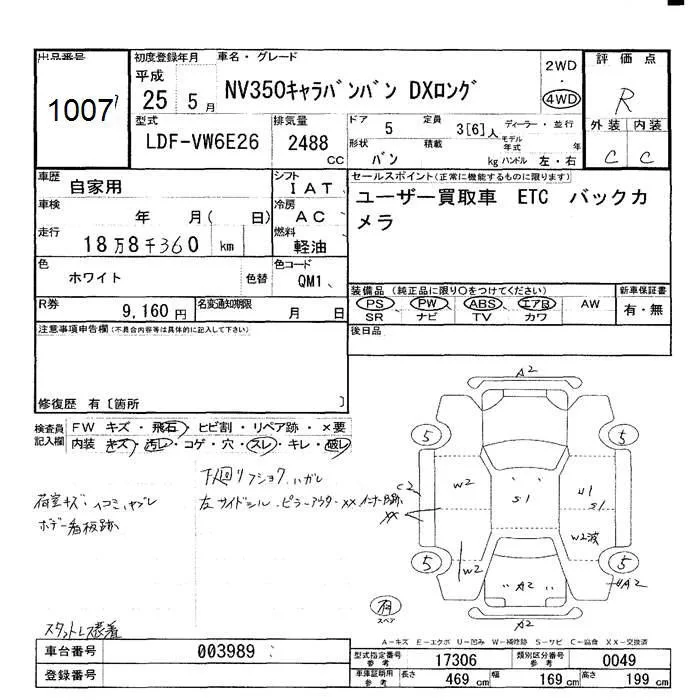 出品番号 初度登録年月 車名・グレード 評価点
1007 平成 25 5月 NV350キャラバンバン DXロング 2WD ・ 4WD R
型式 排気量 ドア 5 定員 3[6]人 ディーラー・並行 外装 内装
LDF-VW6E26 2488 cc 形状 バン 積載 kg モデル年式 年 ハンドル 左・右 C C
車歴 自家用 シフト IAT セールスポイント(正常に機能するものに限ります)
車検 年 月( 日) 冷房 AC ユーザー買取車 ETC バックカ
走行 18万8千360 km 燃料 軽油 メラ
色 ホワイト 色替 色コード QM1
装備品 (純正品に限り○をつけてください) 新車保証書
R券 9,160円 名変通知期限 月 日 PS PW ABS エアB AW 有・無
SR ナビ TV カワ
注意事項申告欄(不具合内容等は具体的に記入して下さい) 後日品
修復歴 有〔箇所 〕
検査員記入欄 FW キズ・飛石・ヒビ割・リペア跡・×要
内装 キズ・汚れ・コゲ・穴・スレ・キレ・破レ
下回リフショク、ハガレ
左サイドシル・ピラーアウター××インナー
荷室キズ・ヘコミ、ヤブレ
ボデー看板跡
スタットレス装着
A2
5 5
C2 W2 S1 U1 S1
××
W2 W2波
5 5
A2 A2
有 スペア
A2
A-キズ E-エクボ U-凹み W-補修跡 S-サビ C-腐食 XX-交換済
車台番号 003989 型式指定番号 参考 17306 類別区分番号 参考 0049
登録番号 車庫証明用 参考 長さ 469 cm 幅 169 cm 高さ 199 cm